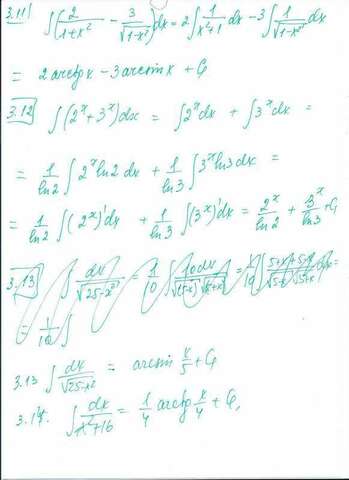 3.11) ∫(2/(1+x²) − 3/√(1−x²))dx = 2∫1/(x²+1) dx − 3∫1/√(1−x²) dx
= 2arctgx − 3arcsinx + C₁
3.12) ∫(2ˣ+3ˣ)dx = ∫2ˣdx + ∫3ˣdx =
= 1/ln2 ∫2ˣln2 dx + 1/ln3 ∫3ˣln3dx =
= 1/ln2 ∫(2ˣ)'dx + 1/ln3 ∫(3ˣ)'dx = 2ˣ/ln2 + 3ˣ/ln3 + C₁
3.13) ∫dx/√(25−x²) = 1/10 ∫10dx
= 1/10 ∫
3.13 ∫dx/√(25−x²) = arcsin x/5 + C₁
3.14. ∫dx/(x²+16) = 1/4 arctg x/4 + C₁,